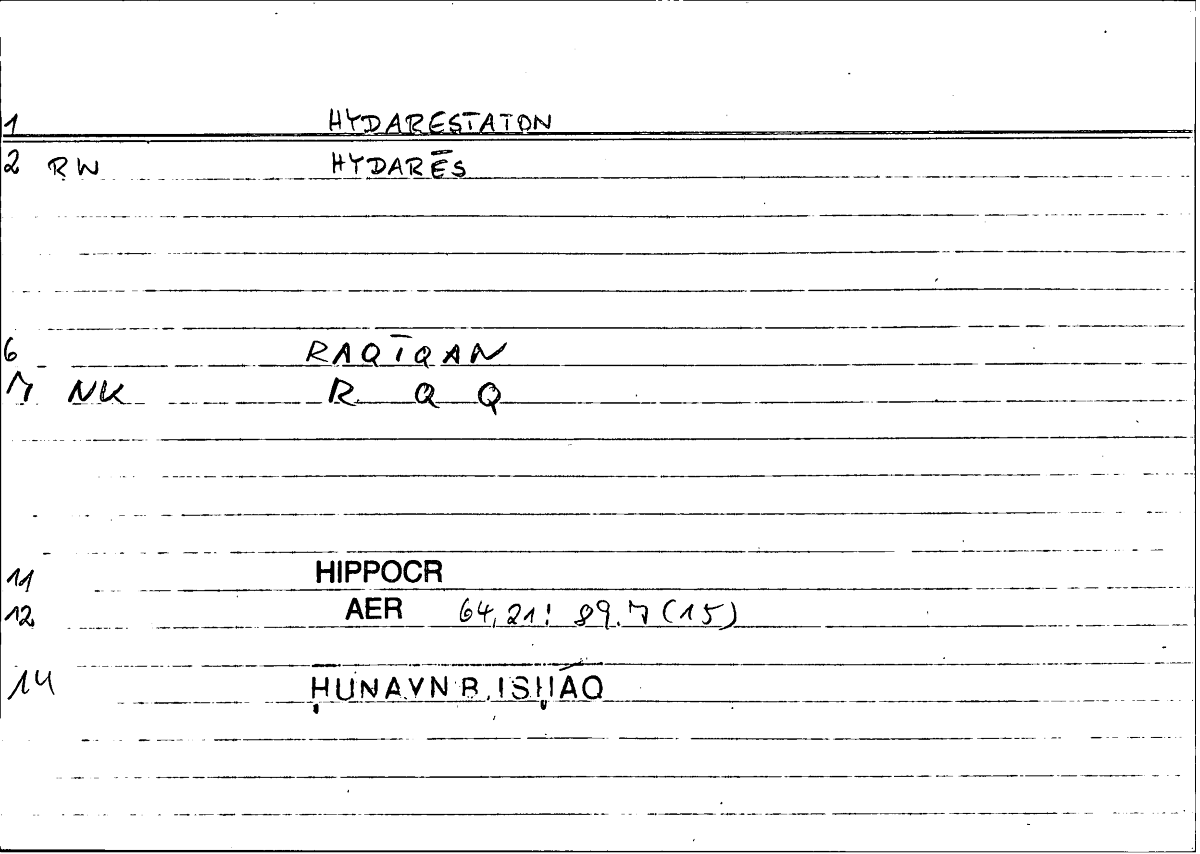 1 HYDARESTATON
2 RW HYDARĒS
6 RAQĪQAN
7 NK R Q Q
11 HIPPOCR
12 AER 64,21! 89.7 (15)
14 ḤUNAYN B. ISḤĀQ